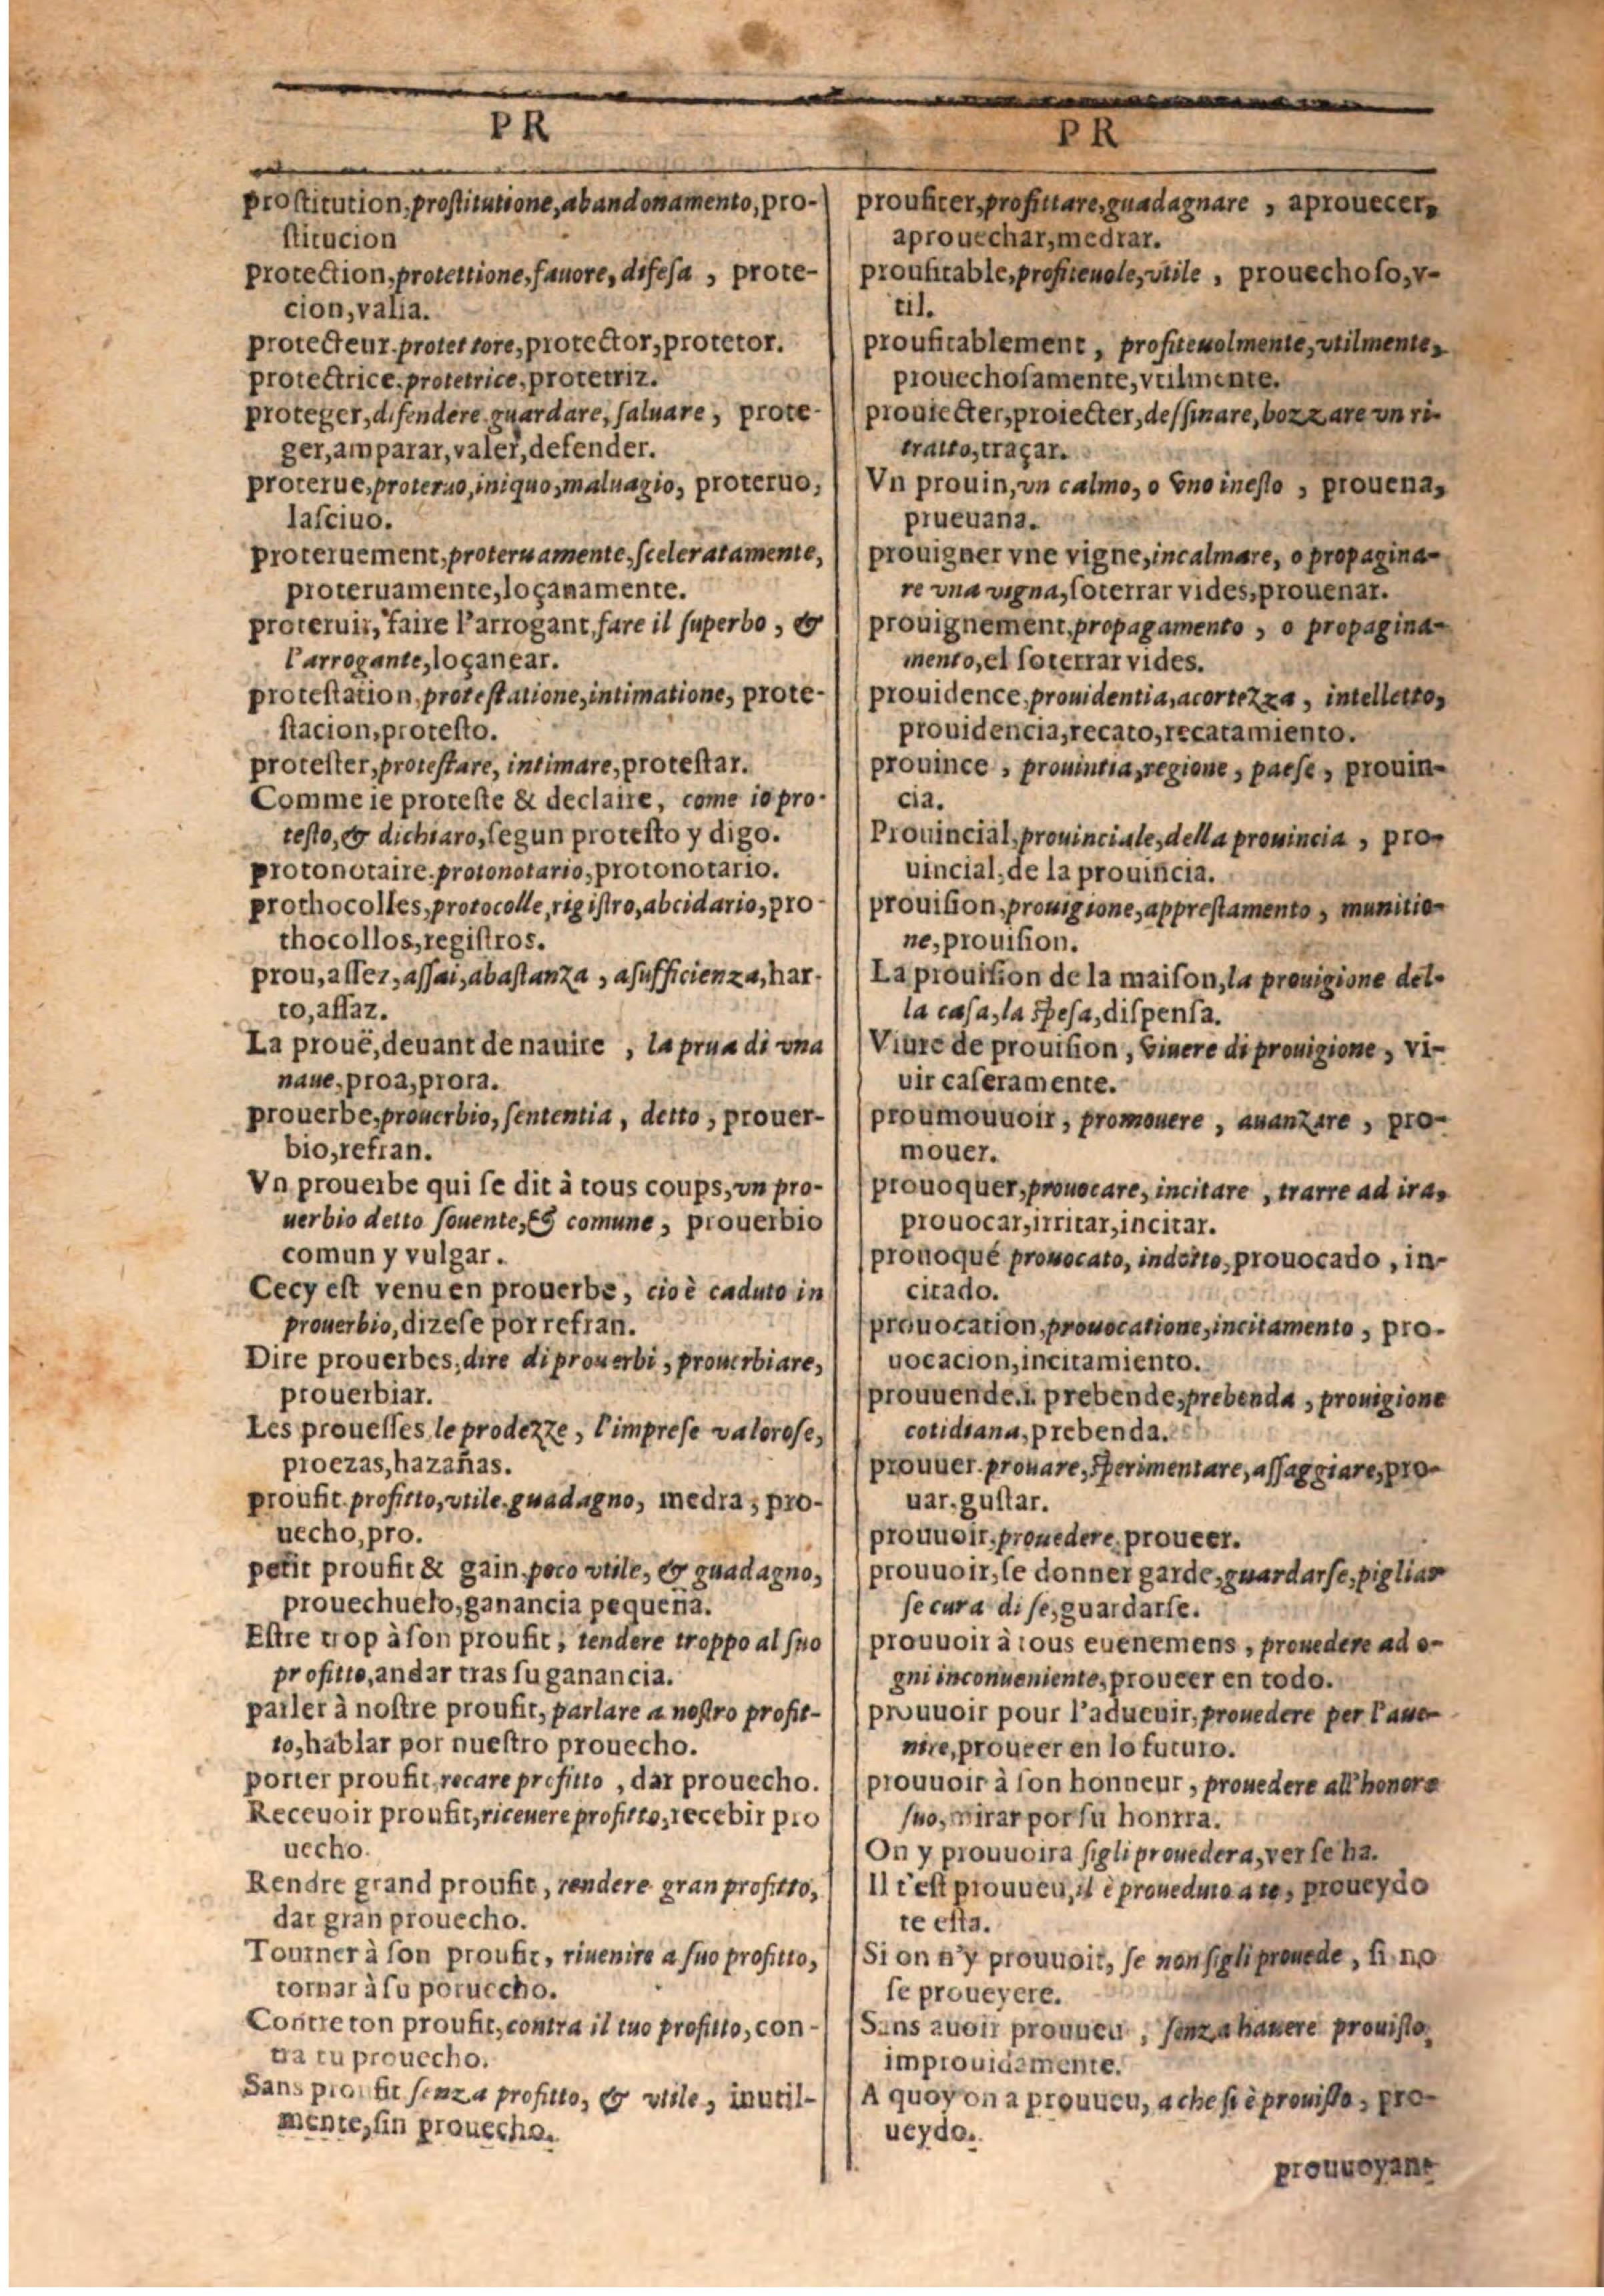 PR
proſtitution, proſtitutione, abandonamento, pro-
ſtitucion
protection, protettione, fauore, difeſa, prote-
cion, valia.
protecteur. protettore, protector, protetor.
protectrice. protetrice, protetriz.
proteger, difendere guardare, ſaluare, prote-
ger, amparar, valer, defender.
proterue, proteruo, iniquo, maluagio, proteruo,
laſciuo.
proteruement, proteruamente, ſceleratamente,
proteruamente, loçanamente.
proteruir, faire l'arrogant, fare il ſuperbo, &
l'arrogante, loçanear.
proteſtation, proteſtatione, intimatione, prote-
ſtacion, proteſto.
proteſter, proteſtare, intimare, proteſtar.
Comme ie proteſte & declaire, come io pro-
teſto, & dichiaro, ſegun proteſto y digo.
protonotaire. protonotario, protonotario.
prothocolles, protocolle, rigiſtro, abcidario, pro-
thocollos, regiſtros.
prou, aſſez, aſſai, abaſtanza, aſufficienza, har-
to, aſſaz.
La prouë, deuant de nauire, la prua di vna
naue, proa, prora.
prouerbe, prouerbio, ſententia, detto, prouer-
bio, refran.
Vn prouerbe qui ſe dit à tous coups, vn pro-
uerbio detto ſouente, & comune, prouerbio
comun y vulgar.
Cecy eſt venu en prouerbe, cio è caduto in
prouerbio, dizeſe por refran.
Dire prouerbes, dire di prouerbi, prouerbiare,
prouerbiar.
Les proueſſes, le prodezze, l'impreſe valoroſe,
proezas, hazañas.
proufit. profitto, vtile. guadagno, medra, pro-
uecho, pro.
petit proufit & gain, poco vtile, & guadagno,
prouechuelo, ganancia pequeña.
Eſtre trop à ſon proufit, tendere troppo al ſuo
profitto, andar tras ſu ganancia.
parler à noſtre proufit, parlare a noſtro profit-
to, hablar por nueſtro prouecho.
porter proufit, recare profitto, dar prouecho.
Receuoir proufit, riceuere profitto, recebir pro
uecho.
Rendre grand proufit, rendere gran profitto,
dar gran prouecho.
Tourner à ſon proufit, riuenire a ſuo profitto,
tornar à ſu poruecho.
Contre ton proufit, contra il tuo profitto, con-
tra tu prouecho.
Sans proufit ſenza profitto, & vtile, inutil-
mente, ſin prouecho.
PR
proufiter, profittare, guadagnare, aprouecer,
aprouechar, medrar.
proufitable, profiteuole, vtile, prouechoſo, v-
til.
proufitablement, profiteuolmente, vtilmente,
prouechoſamente, vtilmente.
prouiecter, proiecter, deſſinare, bozzare vn ri-
tratto, traçar.
Vn prouin, vn calmo, o vno ineſto, prouena,
prueuana.
prouigner vne vigne, incalmare, o propagina-
re vna vigna, ſoterrar vides, prouenar.
prouignement, propagamento, o propagina-
mento, el ſoterrar vides.
prouidence, prouidentia, acortezza, intelletto,
prouidencia, recato, recatamiento.
prouince, prouintia, regione, paeſe, prouin-
cia.
Prouincial, prouinciale, della prouincia, pro-
uincial, de la prouincia.
prouiſion, prouigione, appreſtamento, munitio-
ne, prouiſion.
La prouiſion de la maiſon, la prouigione del-
la caſa, la ſpeſa, diſpenſa.
Viure de prouiſion, viuere di prouigione, vi-
uir caſeramente.
proumouuoir, promouere, auanzare, pro-
mouer.
prouoquer, prouocare, incitare, trarre ad ira,
prouocar, irritar, incitar.
prouoqué prouocato, indotto, prouocado, in-
citado.
prouocation, prouocatione, incitamento, pro-
uocacion, incitamiento.
prouuende. i. prebende, prebenda, prouigione
cotidiana, prebenda.
prouuer. prouare, ſperimentare, aſſaggiare, pro-
uar, guſtar.
prouuoir, prouedere, proueer.
prouuoir, ſe donner garde, guardarſe, pigliar
ſe cura di ſe, guardarſe.
prouuoir à tous euenemens, prouedere ad o-
gni inconueniente, proueer en todo.
prouuoir pour l'aduenir, prouedere per l'aue-
nire, proueer en lo futuro.
prouuoir à ſon honneur, prouedere all'honore
ſuo, mirar por ſu honrra.
On y prouuoira ſigli prouedera, ver ſe ha.
Il t'eſt prouueu, il è proueduto a te, proueydo
te eſta.
Si on n'y prouuoit, ſe non ſigli prouede, ſi no
ſe proueyere.
Sans auoir prouueu, ſenza hauere prouiſto,
improuidamente.
A quoy on a prouueu, a che ſi è prouiſto, pro-
ueydo.
prouuoyant